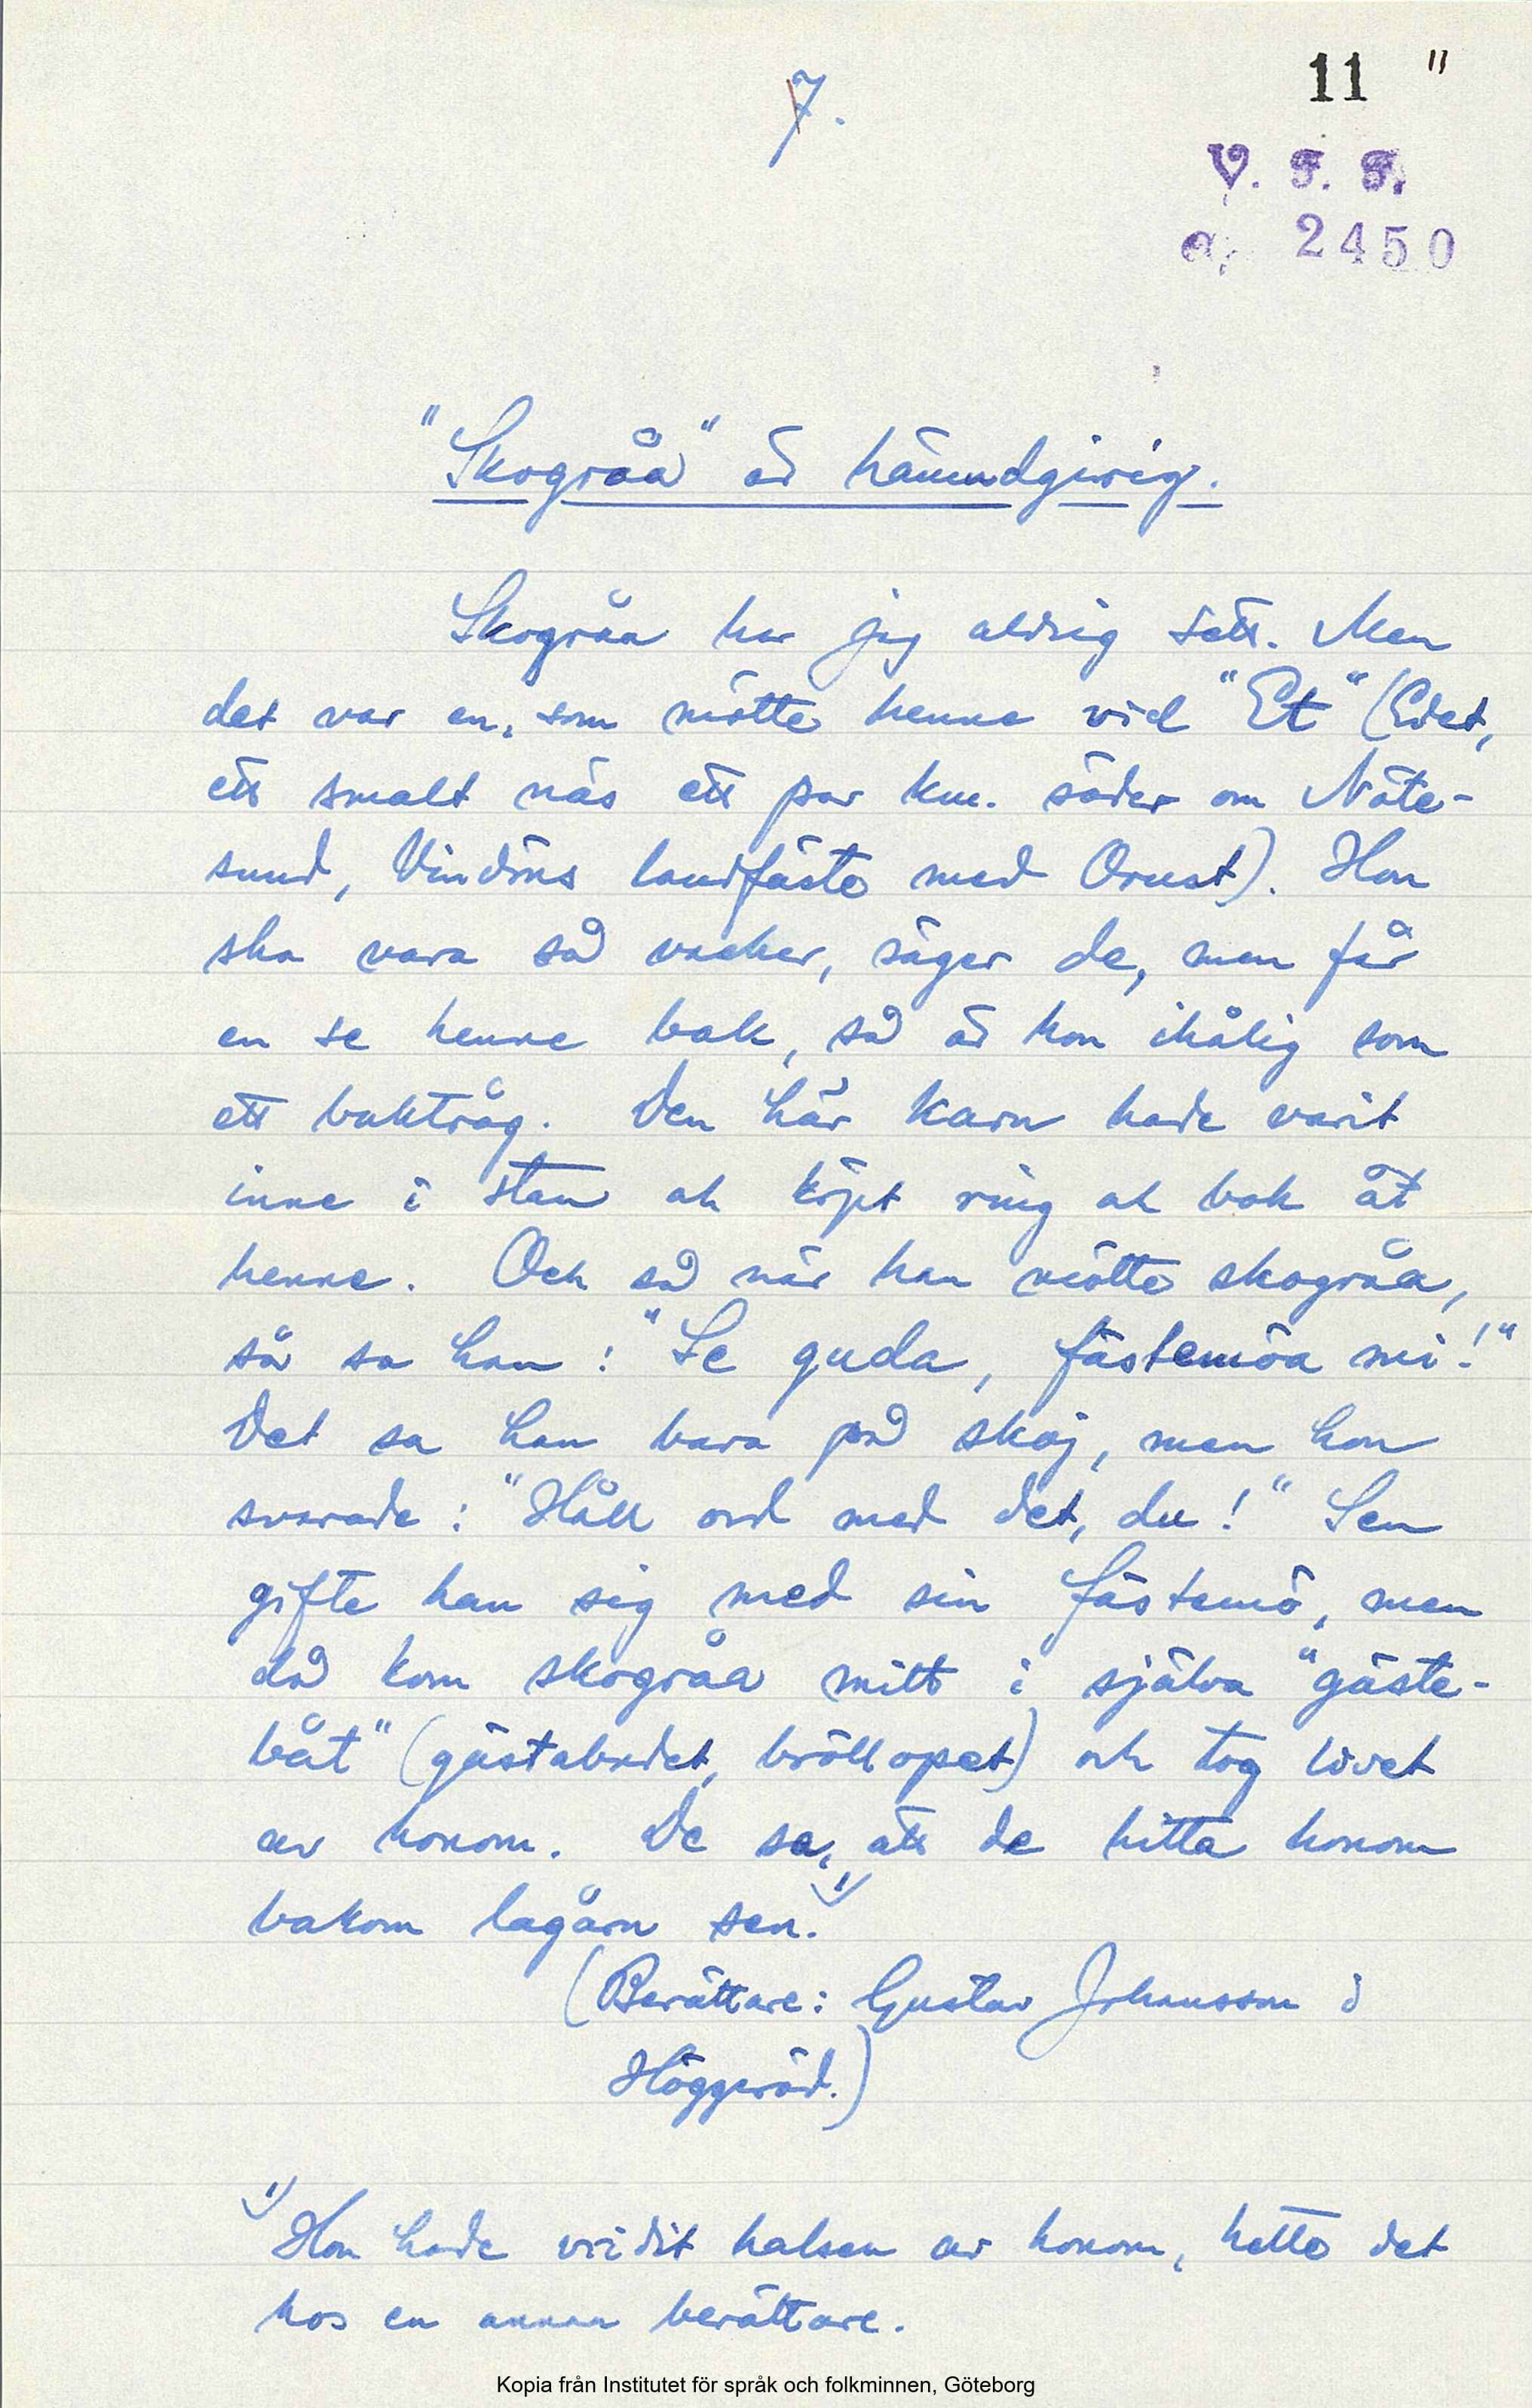 7.
11 "
V. F. F.
a, 2450
"Skogråa" är hämndgirig.
Skogråa har jag aldrig sett. Men
det var en, som mötte henne vid "Et" (Edet,
ett smalt näs ett par km. söder om Nöte-
sund, Vindöns landfäste med Orust). Hon
ska vara så vacker, säger de, men får
en se henne bak, så är hon ihålig som
ett baktråg. Den här karn hade varit
inne i stan ok köpt ring ok bok åt
henne. Och så när han mötte skogråa,
så sa han: "Se guda, fästemöa mi!"
Det sa han bara på skoj, men hon
svarade: "Håll ord med det, du!" Sen
gifte han sig med sin fästemö, men
då kom skogråa mitt i själva "gäste-
båt" (gästabudet, bröllopet) och tog livet
av honom. De sa, att de hitta honom
bakom lagårn sen. 1)
(Berättare: Gustav Johansson i
Höggeröd.)
1) Hon hade vridit halsen av honom, hette det
hos en annan berättare.
Kopia från Institutet för språk och folkminnen, Göteborg